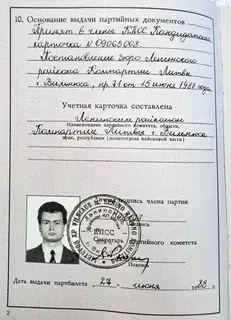 10. Основание выдачи партийных документов
Принят в члены КПСС Кандидатская
карточка N 09065008.
Постановление бюро Ленинского
райкома Компартии Литвы
г. Вильнюса, пр. 71 от 15 июня 1988 года
Учетная карточка составлена
Ленинским райкомом
Наименование партийного комитета, области,
Компартии Литвы г. Вильнюса
края, республики (политотдела войсковой части)
подпись члена партии
КПСС
Секретарь
партийного комитета
Подпись
Дата выдачи партбилета 27 июня 1988 г.
2